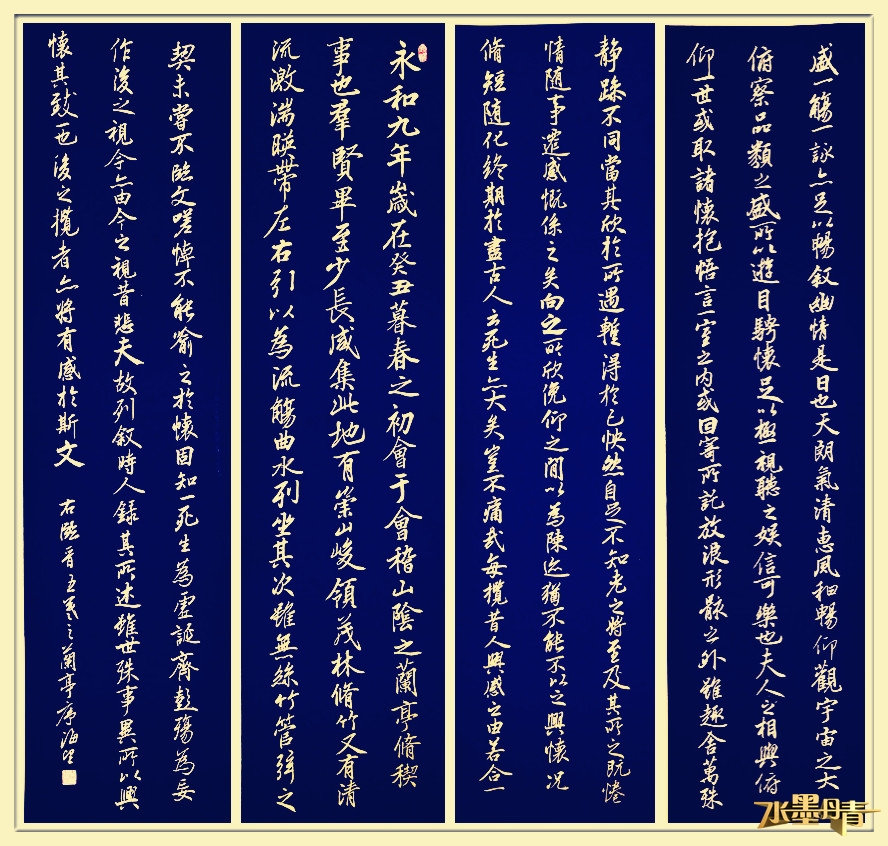 盛一觴一詠亦足以暢叙幽情是日也天朗氣清惠風和暢仰觀宇宙之大
俯察品類之盛所以遊目騁懷足以極視聽之娱信可樂也夫人之相與俯
仰一世或取諸懷抱悟言一室之内或因寄所託放浪形骸之外雖趣舍萬殊
静躁不同當其欣於所遇暫得於己怏然自足不知老之將至及其所之既惓
情隨事遷感慨係之矣向之所欣俛仰之間以為陳迹猶不能不以之興懷况
脩短隨化終期於盡古人云死生亦大矣豈不痛哉每攬昔人興感之由若合一
永和九年歲在癸丑暮春之初會于會稽山陰之蘭亭脩稧
事也羣賢畢至少長咸集此地有崇山峻領茂林脩竹又有清
流激湍暎帶左右引以為流觴曲水列坐其次雖無絲竹管弦之
契未嘗不臨文嗟悼不能喻之於懷固知一死生為虚誕齊彭殤為妄
作後之視今亦由今之視昔悲夫故列叙時人録其所述雖世殊事異所以興
懷其致一也後之攬者亦將有感於斯文 右臨晉王羲之蘭亭序海
水墨丹青